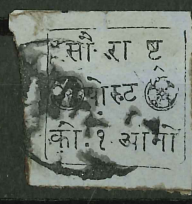 सौ.रा ष्ट्र
पोस्ट
की.१.आंनो